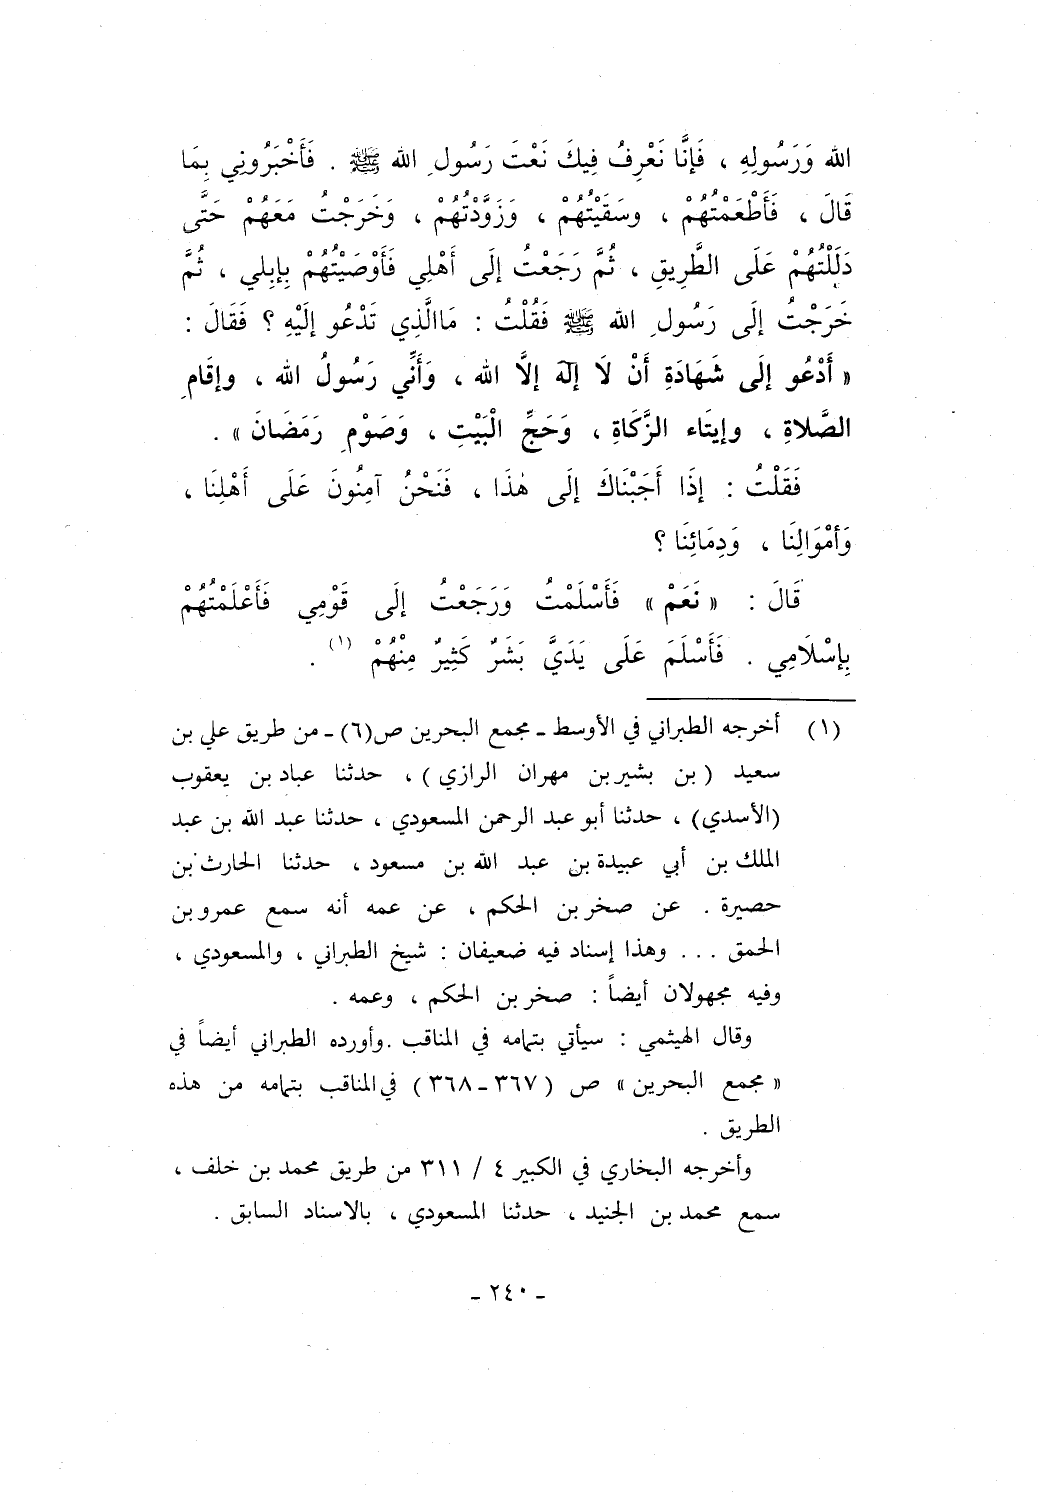 الله وَرَسُولِهِ ، فَإِنَّا نَعْرِفُ فِيكَ نَعْتَ رَسُولِ الله ﷺ . فَأَخْبَرُونِي بِمَا
قَالَ ، فَأَطْعَمْتُهُمْ ، وسَقَيْتُهُمْ ، وَزَوَّدْتُهُمْ ، وَخَرَجْتُ مَعَهُمْ حَتَّى
دَلَلْتُهُمْ عَلَى الطَّرِيقِ ، ثُمَّ رَجَعْتُ إلَى أَهْلِي فَأَوْصَيْتُهُمْ بِإبِلِي ، ثُمَّ
خَرَجْتُ إلَى رَسُولِ الله ﷺ فَقُلْتُ : مَاالَّذِي تَدْعُو إلَيْهِ ؟ فَقَالَ :
« أَدْعُو إلَى شَهَادَةِ أَنْ لَا إلَهَ إلَّا الله ، وَأَنِّي رَسُولُ الله ، وإقَامِ
الصَّلاةِ ، وإيتَاء الزَّكَاةِ ، وَحَجِّ الْبَيْتِ ، وَصَوْمِ رَمَضَانَ » .
فَقَلْتُ : إذَا أَجَبْنَاكَ إلَى هٰذَا ، فَنَحْنُ آمِنُونَ عَلَى أَهْلِنَا ،
وَأمْوَالِنَا ، وَدِمَائِنَا ؟
قَالَ : « نَعَمْ » فَأَسْلَمْتُ وَرَجَعْتُ إلَى قَوْمِي فَأَعْلَمْتُهُمْ
بِإسْلَامِي . فَأَسْلَمَ عَلَى يَدَيَّ بَشَرٌ كَثِيرٌ مِنْهُمْ (١) .
(١) أخرجه الطبراني في الأوسط ـ مجمع البحرين ص(٦) ـ من طريق علي بن
سعيد ( بن بشير بن مهران الرازي ) ، حدثنا عباد بن يعقوب
(الأسدي) ، حدثنا أبو عبد الرحمن المسعودي ، حدثنا عبد الله بن عبد
الملك بن أبي عبيدة بن عبد الله بن مسعود ، حدثنا الحارث بن
حصيرة . عن صخر بن الحكم ، عن عمه أنه سمع عمرو بن
الحمق ... وهذا إسناد فيه ضعيفان : شيخ الطبراني ، والمسعودي ،
وفيه مجهولان أيضاً : صخر بن الحكم ، وعمه .
وقال الهيثمي : سيأتي بتمامه في المناقب .وأورده الطبراني أيضاً في
« مجمع البحرين » ص ( ٣٦٧ ـ ٣٦٨ ) في المناقب بتمامه من هذه
الطريق .
وأخرجه البخاري في الكبير ٤ / ٣١١ من طريق محمد بن خلف ،
سمع محمد بن الجنيد ، حدثنا المسعودي ، بالاسناد السابق .
ـ ٢٤٠ ـ